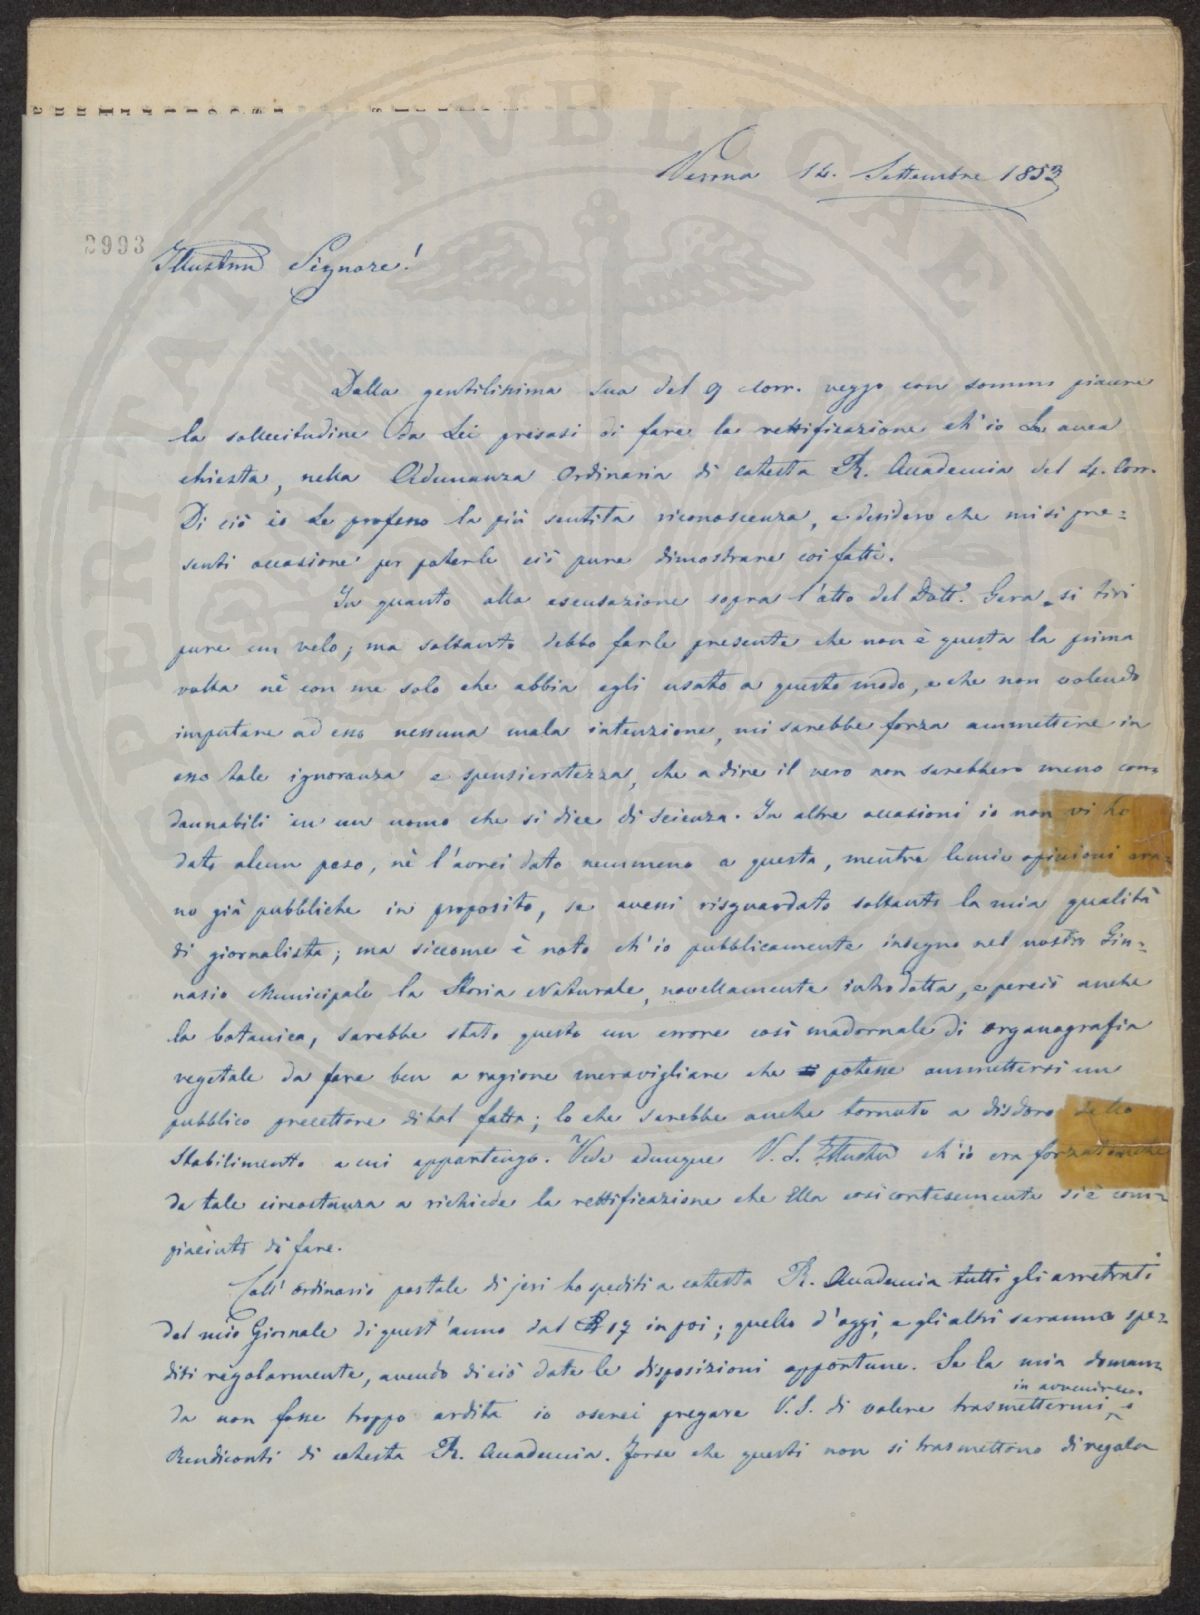 Verona 14. Settembre 1853
2993
Illustrmo Signore!
Dalla gentilissima sua del 9 corr. veggo con sommo piacere
la sollecitudine da Lei presasi di fare la rettificazione ch'io Le avea
chiesta, nella Adunanza Ordinaria di cotesta R. Accademia del 4. Corr.
Di ciò io Le professo la più sentita riconoscenza, e desidero che mi si pre=
senti occasione per poterle ciò pure dimostrare coi fatti.
In quanto alla escusazione sopra l'atto del Dott.r Gera, si tiri
pure un velo; ma soltanto debbo farle presente che non è questa la prima
volta nè con me solo che abbia egli usato a questo modo, e che non volendo
imputare ad esso nessuna mala intenzione, mi sarebbe forza ammettere in
esso tale ignoranza e spensieratezza, che a dire il vero non sarebbero meno con=
dannabili in un uomo che si dice di scienza. In altre occasioni io non vi ho
dato alcun peso, nè l'avrei dato nemmeno a questa, mentre le mie opinioni era=
no già pubbliche in proposito, se avessi risguardato soltanto la mia qualità
di giornalista; ma siccome è noto ch'io pubblicamente insegno nel nostro Gin=
nasio Municipale la Storia Naturale, novellamente introdotta, e perciò anche
la botanica, sarebbe stato questo un errore così madornale di organografia
vegetale da fare ben a ragione meravigliare che potesse ammettersi un
pubblico precettore di tal fatta; lo che sarebbe anche tornato a disdoro dello
Stabilimento a cui appartengo. Vede adunque V. S. Illustre ch'io era forzatamente
da tale circostanza a richiede la rettificazione che Ella così cortesemente si è com=
piaciuto di fare.
Coll'ordinario postale di jeri ho spediti a cotesta R. Accademia tutti gli arretrati
del mio Giornale di quest'anno dal 17 in poi; quello d'oggi, e gli altri saranno spe=
diti regolarmente, avendo di ciò date le disposizioni opportune. Se la mia doman=
da non fosse troppo ardita io oserei pregare V. S. di volere trasmettermi in avvenire i
Rendiconti di cotesta R. Accademia. Forse che questi non si trasmettono di regola